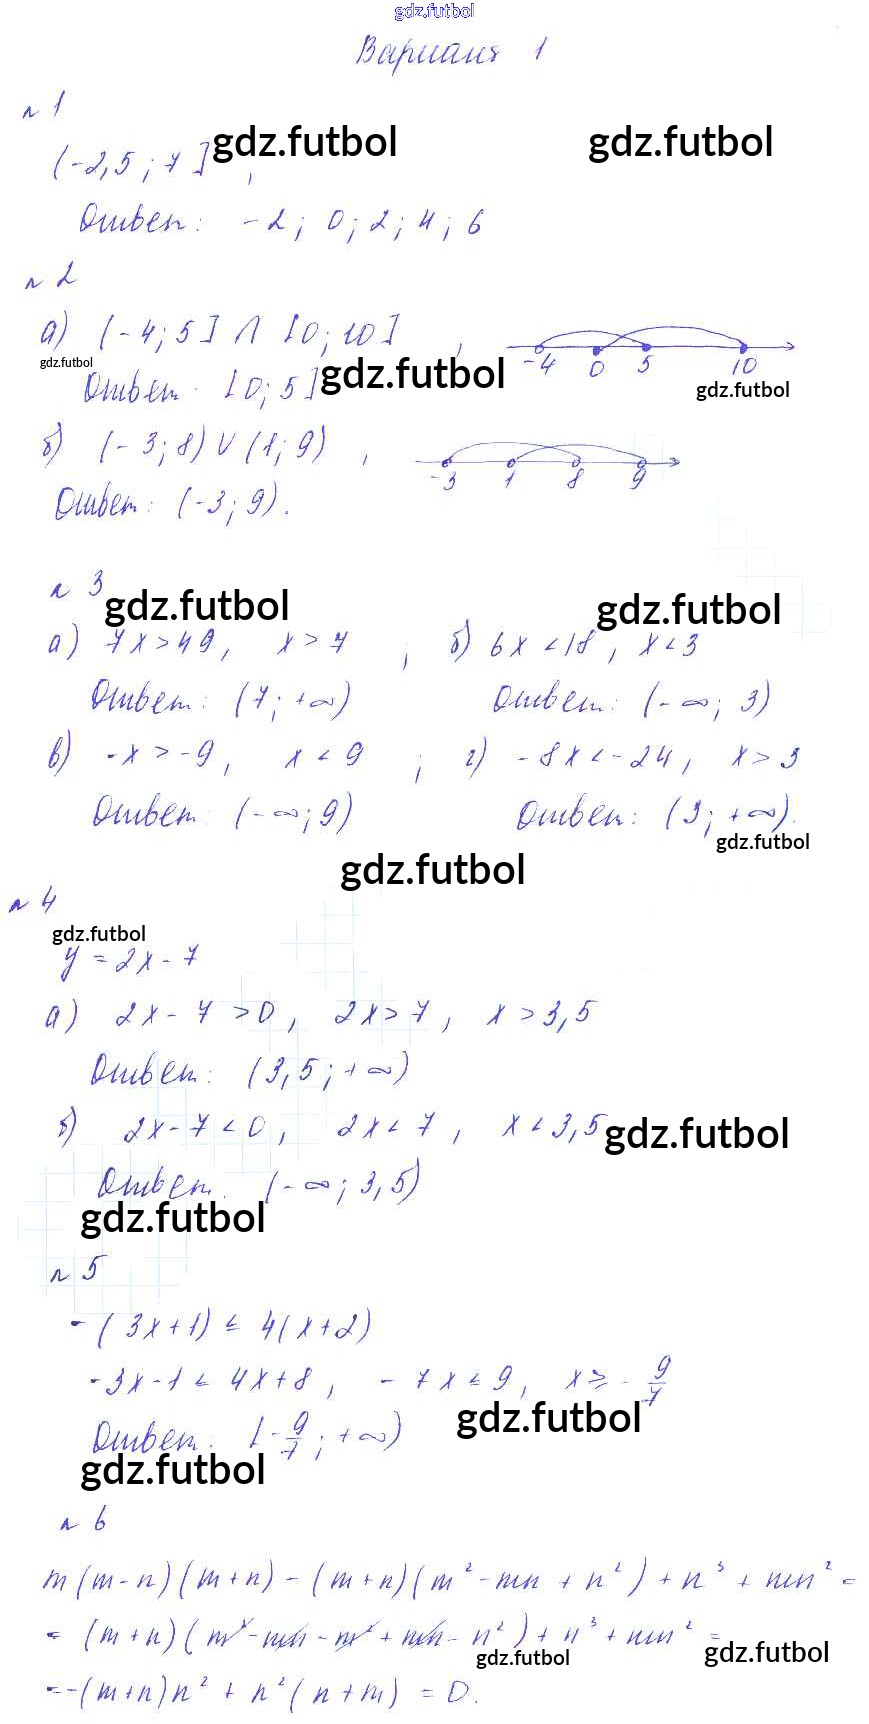 gdz.futbol
Вариант 1
n 1
gdz.futbol gdz.futbol
(-2,5 ; 7] ,
Ответ: -2 ; 0 ; 2 ; 4 ; 6
n 2
а) (-4; 5] ∩ [0; 10] ,
-4 0 5 10
gdz.futbol gdz.futbol gdz.futbol
Ответ: [0; 5]
б) (-3; 8) ∪ (1; 9) ,
-3 1 8 9
Ответ: (-3; 9).
n 3
gdz.futbol gdz.futbol
а) 7x > 49, x > 7 ; б) 6x < 18, x < 3
Ответ: (7; +∞) Ответ: (-∞; 3)
в) -x > -9, x < 9 ; г) -8x < -24, x > 3
Ответ: (-∞; 9) Ответ: (3; +∞).
gdz.futbol
gdz.futbol
n 4
gdz.futbol
y = 2x - 7
а) 2x - 7 > 0, 2x > 7, x > 3,5
Ответ: (3,5; +∞)
б) 2x - 7 < 0, 2x < 7, x < 3,5
gdz.futbol
Ответ. (-∞; 3,5)
gdz.futbol
n 5
-(3x+1) ≤ 4(x+2)
-3x-1 ≤ 4x+8, -7x ≤ 9, x ≥ -9/7
gdz.futbol
Ответ: [-9/7; +∞)
gdz.futbol
n 6
m(m-n)(m+n) - (m+n)(m² - mn + n²) + n³ + mn² =
= (m+n)(m² - mn - m² + mn - n²) + n³ + mn² =
gdz.futbol gdz.futbol
= -(m+n)n² + n²(n+m) = 0.